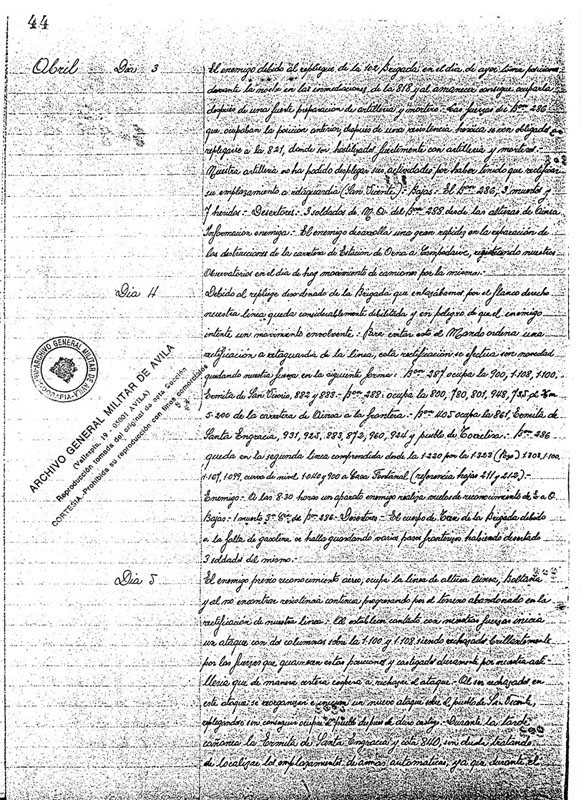 44
Abril Dia 3 El enemigo debido al repliegue de la 102 Brigada en el día de ayer toma posiciones
durante la noche en las inmediaciones de la 818 y al amanecer consigue ocuparla
después de una fuerte preparación de artillería y mortero.- Las fuerzas del Bon 286
que ocupaban la posición anterior, después de una resistencia heroica se ven obligados
replegarse a la 821, donde son hostilizados fuertemente con artillería y morteros.
Nuestra artillería no ha podido desplegar sus actividades por haber tenido que rectificar
su emplazamiento a retaguardia (San Vicente).- Bajas.- El Bon 286, 3 muertos y
7 heridos.- Desertores.- 3 soldados de M.A. del Bon 288 desde las alturas de Ainsa
Información enemiga.- El enemigo desarrolla una gran rapidez en la reparación de
las destrucciones de la carretera de Estación de Orna a Campodarve, registrando nuestros
Observatorios en el día de hoy movimiento de camiones por la misma.-
Dia 4 Debido al repliegue desordenado de la Brigada que enlazábamos por el flanco derecho
nuestra línea queda considerablemente debilitada y en peligro de que el enemigo
intente un movimiento envolvente.- Para evitar esto el Mando ordena una
rectificación a retaguardia de la línea, esta rectificación se efectua con novedad
quedando nuestra fuerza en la siguiente forma: Bon 287 ocupa la 900, 1.108, 1.100.
Ermita de San 882 y 883.- Bon 288: ocupa la 800, 780, 801, 948, 725 al Km
5.200 de la carretera de Ainsa a la frontera.- Bon 405 ocupa la 861, Ermita de
Santa Engracia, 931, 923, 883, 872, 960, 924 y pueblo de Torrelisa.- Bon 286
queda en la segunda línea comprendida desde la 1.220 por la 1.203 (Pozo) 1.100.
1.167, 1.099, curva de nivel 1.040 y 900 a Cruz Fontanal (referencia hojas 211 y 212).-
Enemigo.- A las 8.30 horas un aparato enemigo realiza vuelos de reconocimiento de E. a O.
Bajas.- 1 muerto 3ª Cia del Bon 286.- Desertores.- El cuerpo de Tren de la Brigada debido
a la falta de gasolina se halla guardando varios pasos fronterizos habiendo desertado
3 soldados del mismo.-
Dia 5 El enemigo previo reconocimiento aéreo, ocupa la línea de alturas Ainsa, Boltaña
y al no encontrar resistencia continua progresando por el terreno abandonado en la
rectificación de nuestra línea: Al establecer contacto con nuestras fuerzas inicia
un ataque con dos columnas sobre la 1.100 y 1.108 siendo rechazado brillantemente
por las fuerzas que guarnecen estas posiciones y castigado duramente por nuestra arti-
llería que de manera certera coopera a rechazar el ataque.- Al ser rechazados en
este ataque se reorganizan e inician un nuevo ataque sobre el pueblo de San Vicente,
replegándose sin conseguir ocupar el pueblo después de duro castigo.- Durante la tarde
cañonea la Ermita de Santa Engracia y cota 840, sin duda tratando
de localizar los emplazamientos de armas automáticas, ya que durante el
ARCHIVO GENERAL MILITAR DE AVILA
ARCHIVO GENERAL MILITAR DE AVILA
(Vallespín, 19 - 05001 AVILA)
Reproducción tomada del original de esta Sección
CORTESIA.-Prohibida su reproducción con fines comerciales